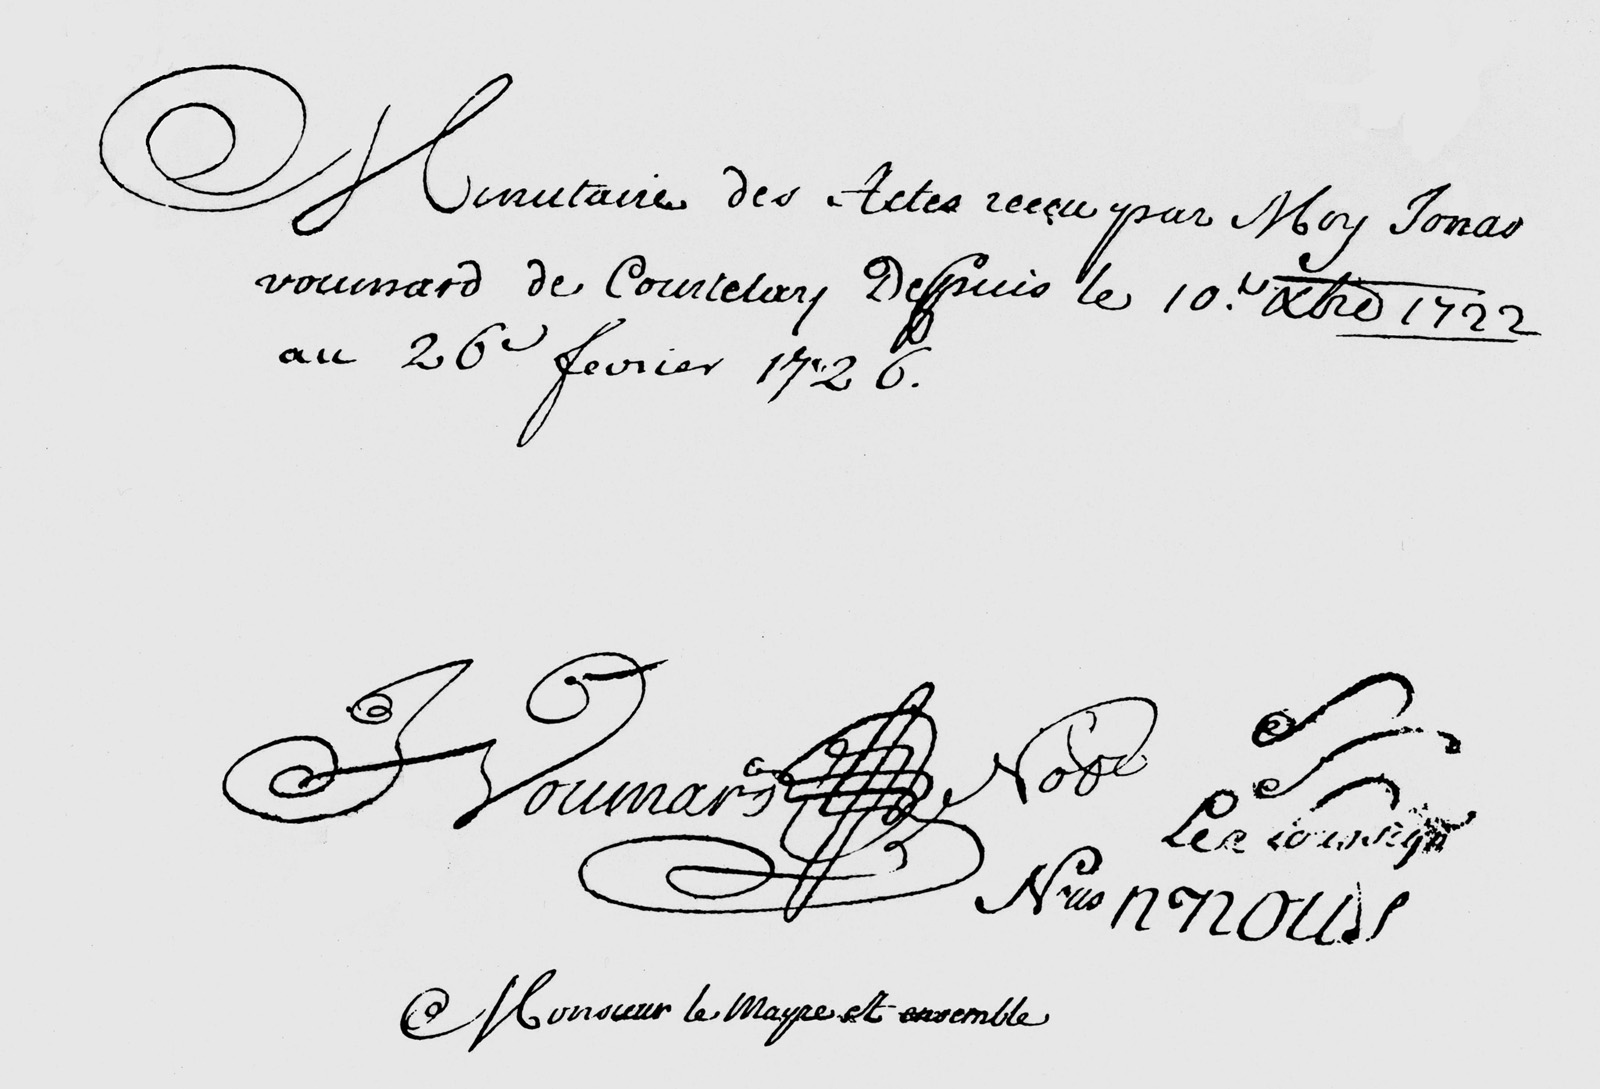 Minutaire des Actes receu par Moy Jonas
voumard de Courtelary Despuis le 10.e Xbre 1722
au 26e fevrier 1726.
J Voumard Nore
Les soussign
Nous n n nous
Monsieur le Mayre et ensemble